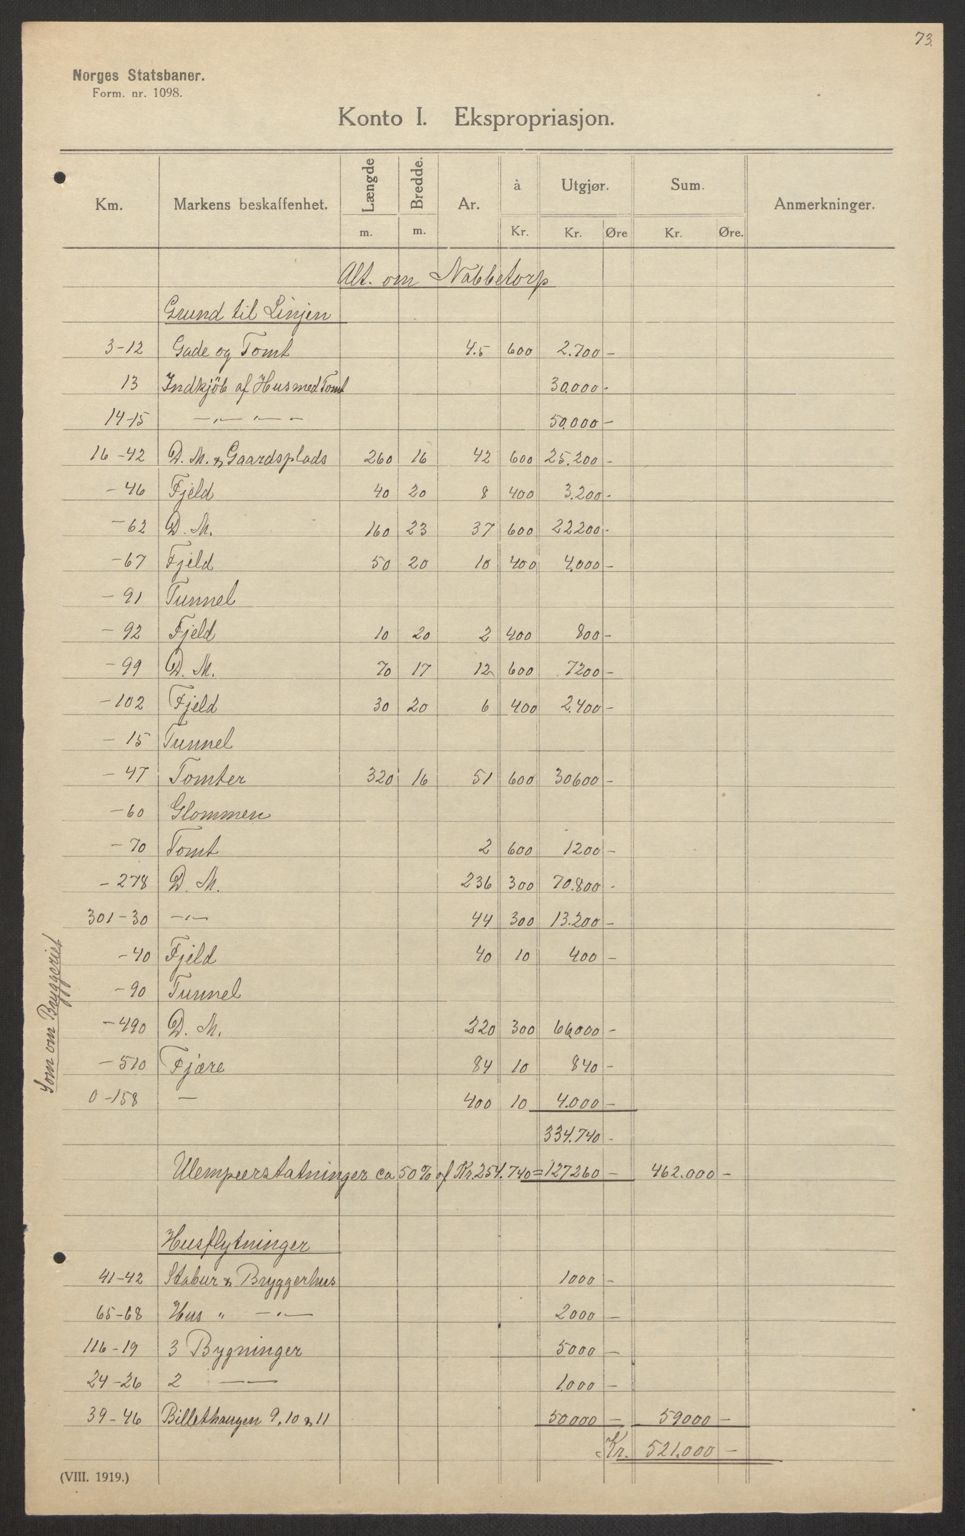 73.
Norges Statsbaner.
Form. nr. 1098.
Konto I. Ekspropriasjon.
Km. Markens beskaffenhet. Længde m. Bredde. m. Ar. à Kr. Utgjør. Kr. Øre Sum. Kr. Øre. Anmerkninger.
Alt. om Nabbetorp
Grund til Linjen
3-12 Gade og Tomt 4.5 600 2.700 -
13 Indkjöb af Hus med Tomt 30.000 -
14-15 — „ — „ — 50.000 -
16-42 D. M. & Gaardsplads 260 16 42 600 25.200 -
-46 Fjeld 40 20 8 400 3.200 -
-62 D. M. 160 23 37 600 22200 -
-67 Fjeld 50 20 10 400 4.000 -
-91 Tunnel
-92 Fjeld 10 20 2 400 800 -
-99 D. M. 70 17 12 600 7200 -
-102 Fjeld 30 20 6 400 2.400 -
-15 Tunnel
-47 Tomter 320 16 51 600 30600 -
-60 Glommen
-70 Tomt 2 600 1200 -
-278 D. M. 236 300 70.800 -
301-30 -„- 44 300 13.200 -
-40 Fjeld 40 10 400 -
-90 Tunnel
-490 D. M. 220 300 66000 -
-510 Fjære 84 10 840 -
0-158 — 400 10 4.000 -
Som om Bryggeriet
334.740 -
Ulempeerstatninger ca 50% af Kr. 254.740 = 127260 - 462.000 -
Husflytninger
41-42 Stabur & Bryggerhus 1000 -
65-68 Hus „ -„- 2000 -
116-19 3 Bygninger 5000 -
24-26 2 — 1.000 -
39-46 Billethaugen 9, 10 & 11 50.000 - 59000 -
Kr. 521.000 -
(VIII. 1919.)